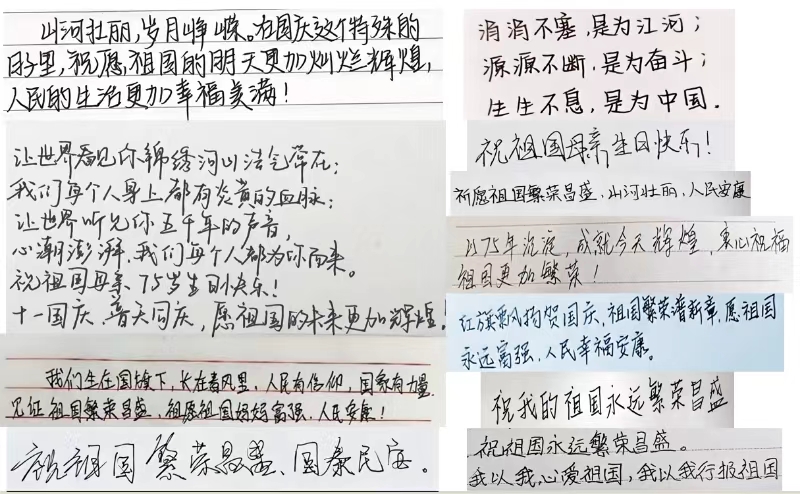 山河壮丽，岁月峥嵘。在国庆这个特殊的
日子里，祝愿祖国的明天更加灿烂辉煌，
人民的生活更加幸福美满！
让世界看见你锦绣河山浩气存在；
我们每个人身上都有炎黄的血脉；
让世界听见你五千年的声音，
心潮澎湃，我们每个人都为你而来。
祝祖国母亲75岁生日快乐！
十一国庆，普天同庆，愿祖国的未来更加辉煌！
我们生在国旗下，长在春风里，人民有信仰，国家有力量，
见证祖国繁荣昌盛，祖愿祖国好好富强，人民安康！
祝祖国繁荣昌盛、国泰民安。
涓涓不塞，是为江河；
源源不断，是为奋斗；
生生不息，是为中国．
祝祖国母亲生日快乐！
祈愿祖国繁荣昌盛，山河壮丽，人民安康
以75年沉淀，成就今天辉煌，衷心祝福
祖国更加繁荣！
红旗飘飘贺国庆，祖国繁荣谱新章，愿祖国
永远富强，人民幸福安康。
祝我的祖国永远繁荣昌盛
祝祖国永远繁荣昌盛。
我以我心爱祖国，我以我行报祖国